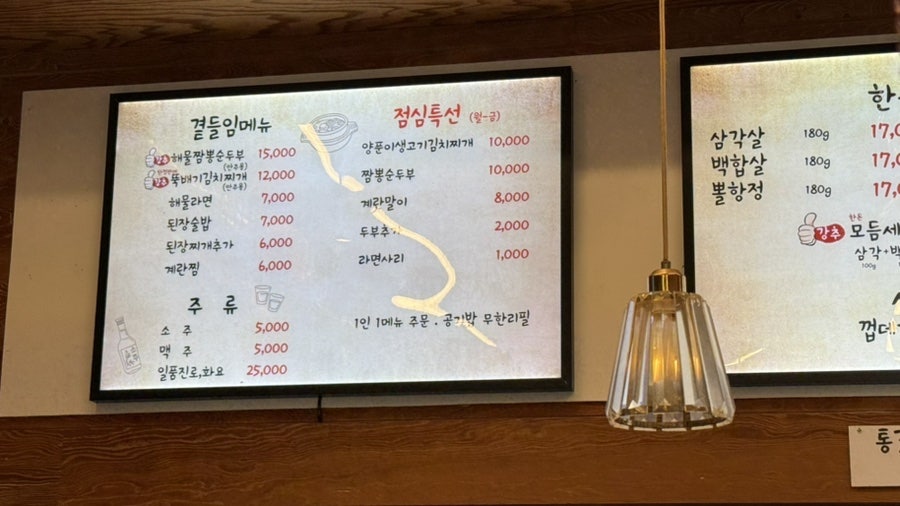 곁들임메뉴
강추 해물짬뽕순두부 15,000
(안주용)
강추 뚝배기김치찌개 12,000
(안주용)
해물라면 7,000
된장술밥 7,000
된장찌개추가 6,000
계란찜 6,000
주 류
소 주 5,000
맥 주 5,000
일품진로,화요 25,000
점심특선 (월-금)
양푼이생고기김치찌개 10,000
짬뽕순두부 10,000
계란말이 8,000
두부추가 2,000
라면사리 1,000
1인 1메뉴 주문 . 공기밥 무한리필
한
삼각살 180g 17,0
백합살 180g 17,0
뽈항정 180g 17,0
한돈
강추 모듬세
삼각+백
100g
껍데
통